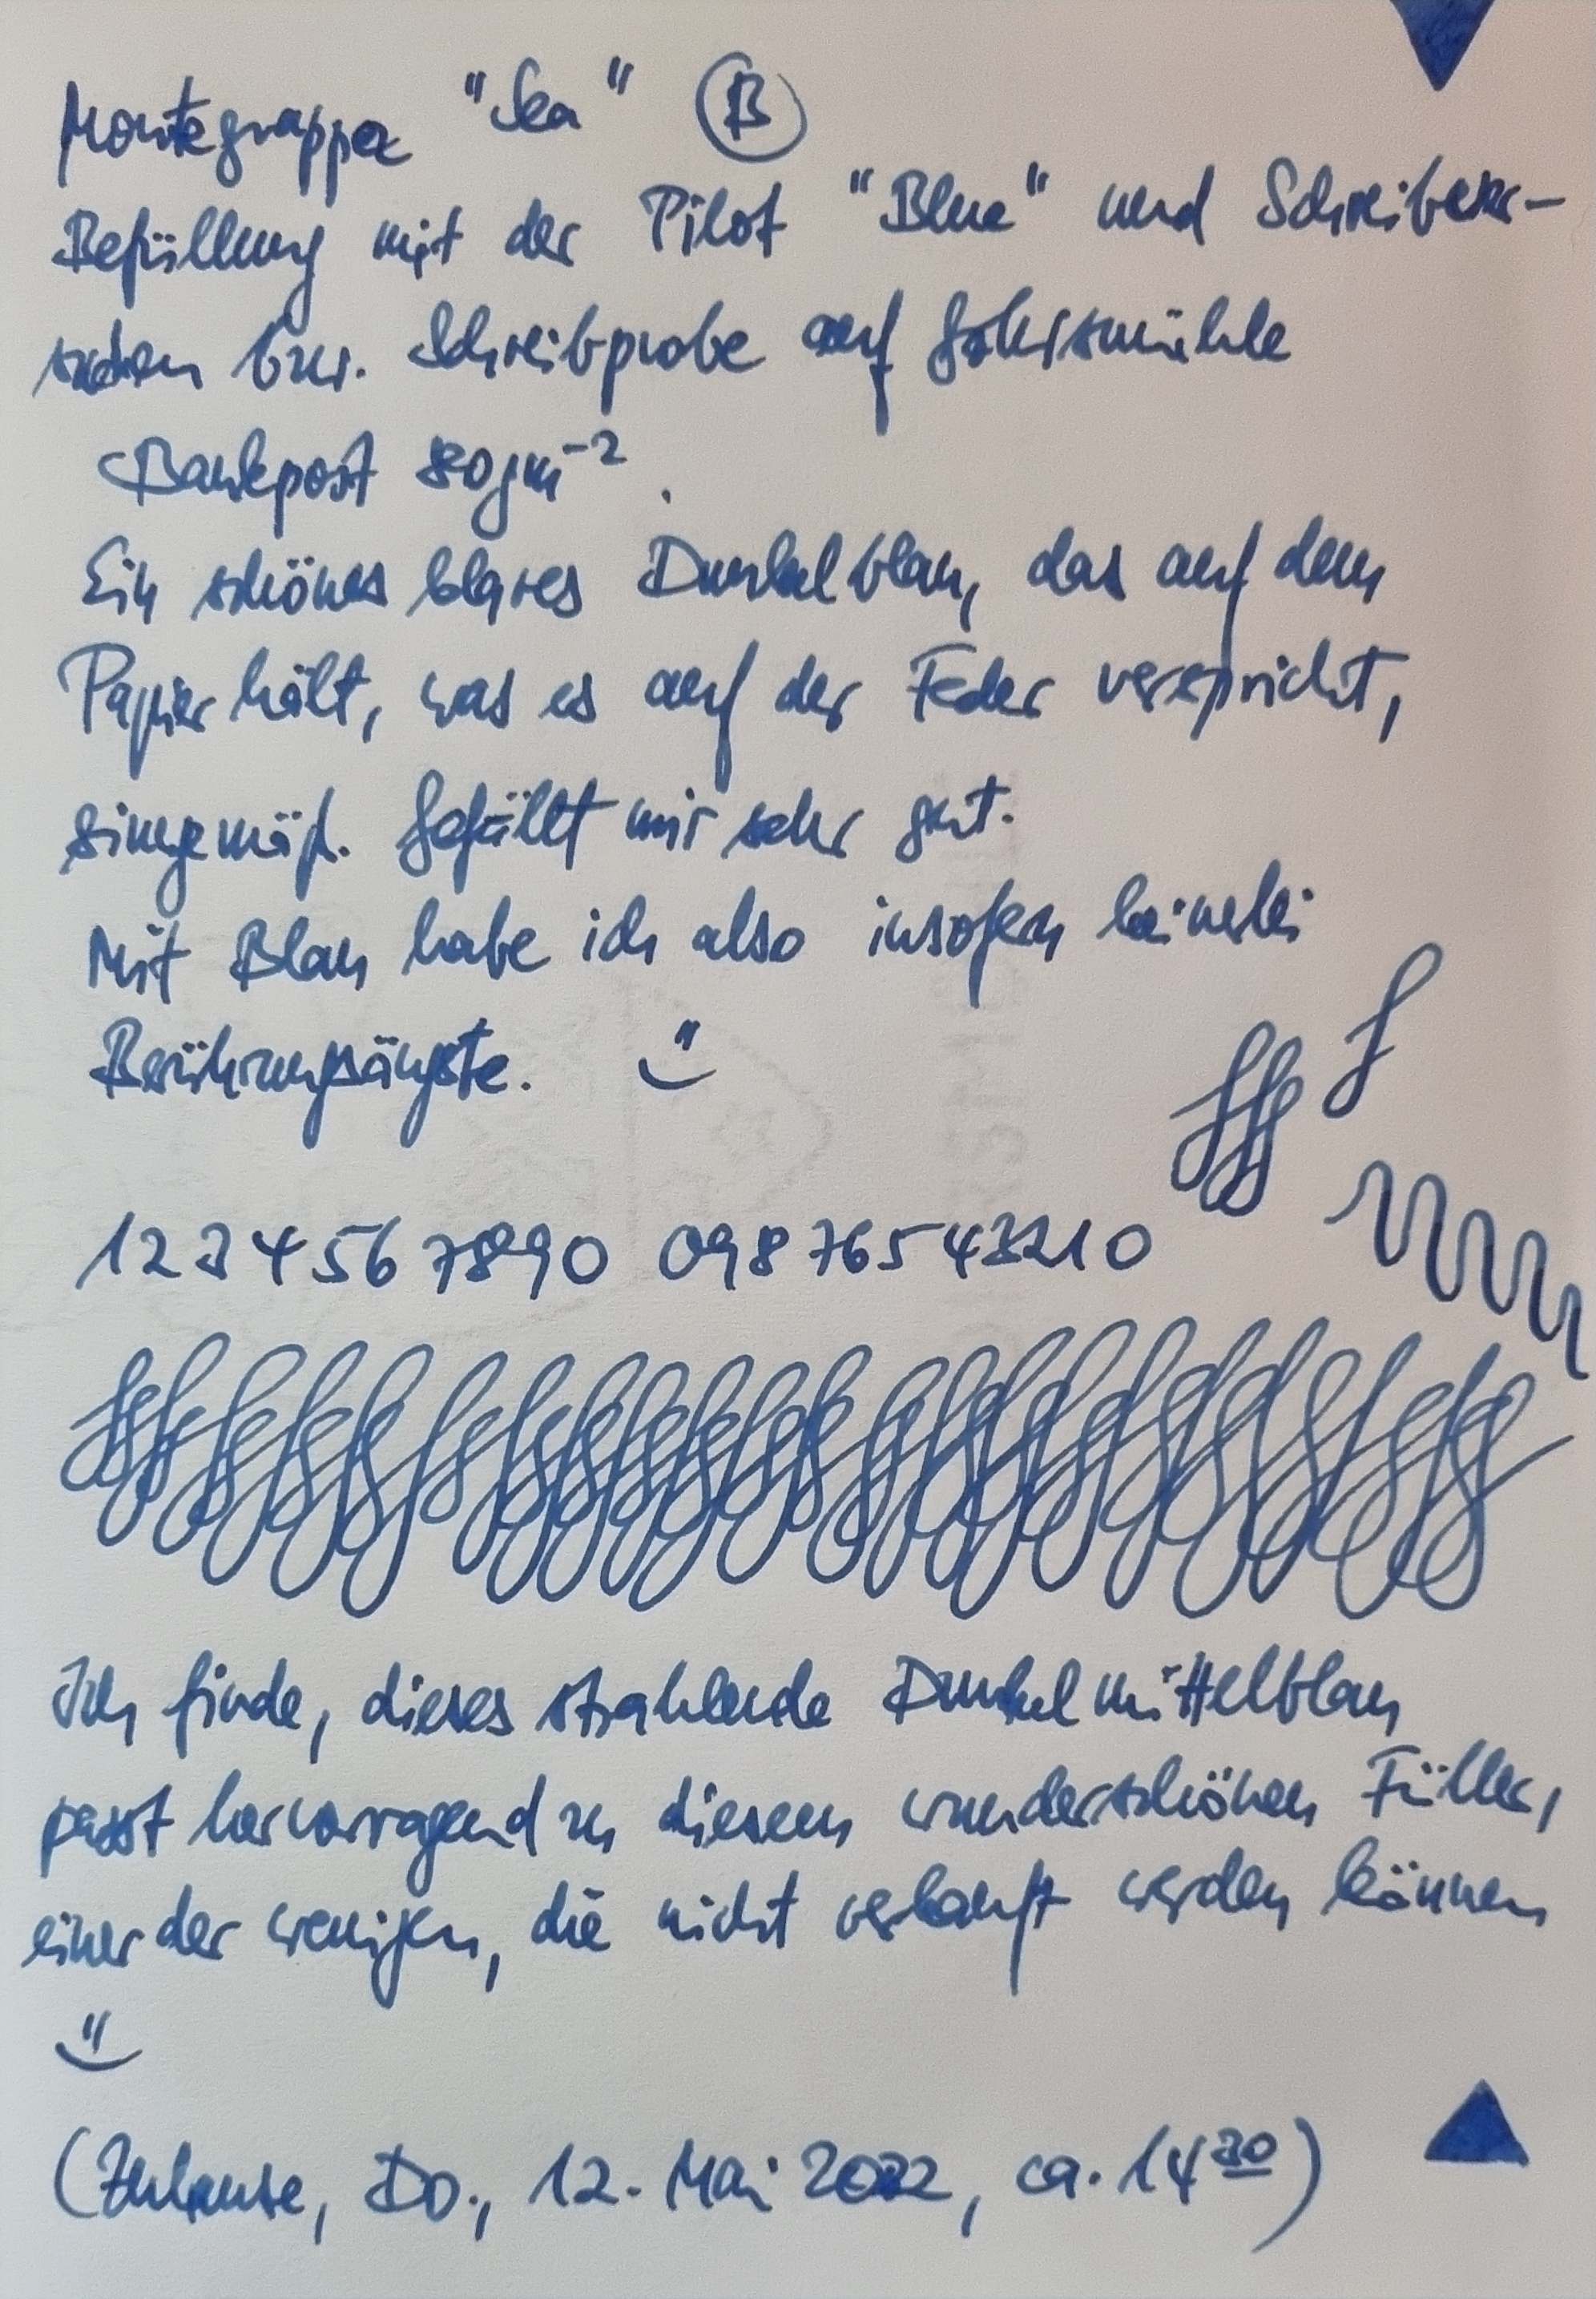 Montegrappa "Sea" B
Befüllung mit der Pilot "Blue" und Schreiber-
suchen bzw. Schreibprobe auf Gohrsmühle
Bankpost 80gm⁻²
Ein schönes klares Dunkelblau, das auf dem
Papier hält, was es auf der Feder verspricht,
singemäß. Gefällt mir sehr gut.
Mit Blau habe ich also insofern keinerlei
Berührungsängste.
1234567890 09876543210
Ich finde, dieses strahlende Dunkelmittelblau
passt hervorragend zu diesem wunderschönen Füller,
einer der wenigen, die nicht verkauft werden können
(Zuhause, Do., 12. Mai 2022, ca. 14³⁰)